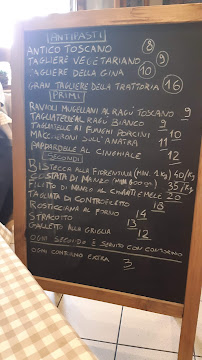 ANTIPASTI
ANTICO TOSCANO 8
TAGLIERE VEGETARIANO 9
TAGLIERE DELLA GINA 10
GRAN TAGLIERE DELLA TRATTORIA 16
PRIMI
RAVIOLI MUGELLANI AL RAGÙ TOSCANO 9
TAGLIATELLE AL RAGÙ BIANCO 9
TAGLIATELLE AI FUNGHI PORCINI 10
MACCHERONI SULL'ANATRA 11
PAPPARDELLE AL CINGHIALE 12
SECONDI
BISTECCA ALLA FIORENTINA (MIN. 1 KG) 40/KG
COSTATA DI MANZO (MIN 600 gr) 35/KG
FILETTO DI MANZO AL CHIANTI E MELE 20
TAGLIATA DI CONTROFILETTO 18
ROSTICCIANA AL FORNO 14
STRACOTTO 13
GALLETTO ALLA GRIGLIA 12
OGNI SECONDO È SERVITO CON CONTORNO
OGNI CONTORNO EXTRA 3